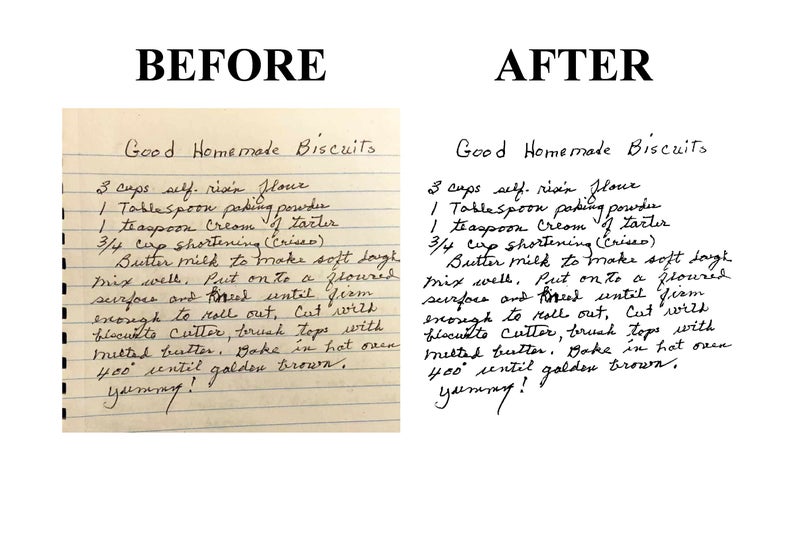 BEFORE
Good Homemade Biscuits
3 cups self-ris'n flour
1 Tablespoon baking powder
1 teaspoon Cream of tarter
3/4 cup shortening (Crisco)
Butter milk to make soft dough
mix well. Put on to a floured
surface and kneed until firm
enough to roll out. Cut with
biscuite Cutter, brush tops with
melted butter. Bake in hot oven
400° until golden brown.
yummy!
AFTER
Good Homemade Biscuits
3 cups self-ris'n flour
1 Tablespoon baking powder
1 teaspoon Cream of tarter
3/4 cup shortening (Crisco)
Butter milk to make soft dough
mix well. Put on to a floured
surface and kneed until firm
enough to roll out. Cut with
biscuite Cutter, brush tops with
melted butter. Bake in hot oven
400° until golden brown.
yummy!